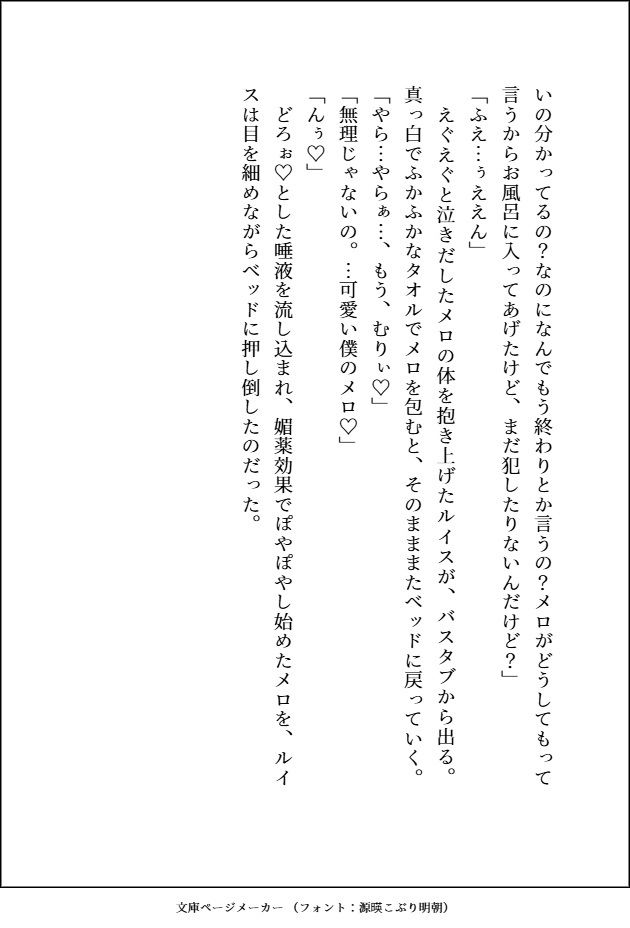 いの分かってるの？なのになんでもう終わりとか言うの？メロがどうしてもって
言うからお風呂に入ってあげたけど、まだ犯したりないんだけど？」
「ふえ…ぅええん」
　えぐえぐと泣きだしたメロの体を抱き上げたルイスが、バスタブから出る。
真っ白でふかふかなタオルでメロを包むと、そのまままたベッドに戻っていく。
「やら…やらぁ…、もう、むりぃ♡」
「無理じゃないの。…可愛い僕のメロ♡」
「んぅ♡」
　どろぉ♡とした唾液を流し込まれ、媚薬効果でぽやぽやし始めたメロを、ルイ
スは目を細めながらベッドに押し倒したのだった。
文庫ページメーカー（フォント：源暎こぶり明朝）